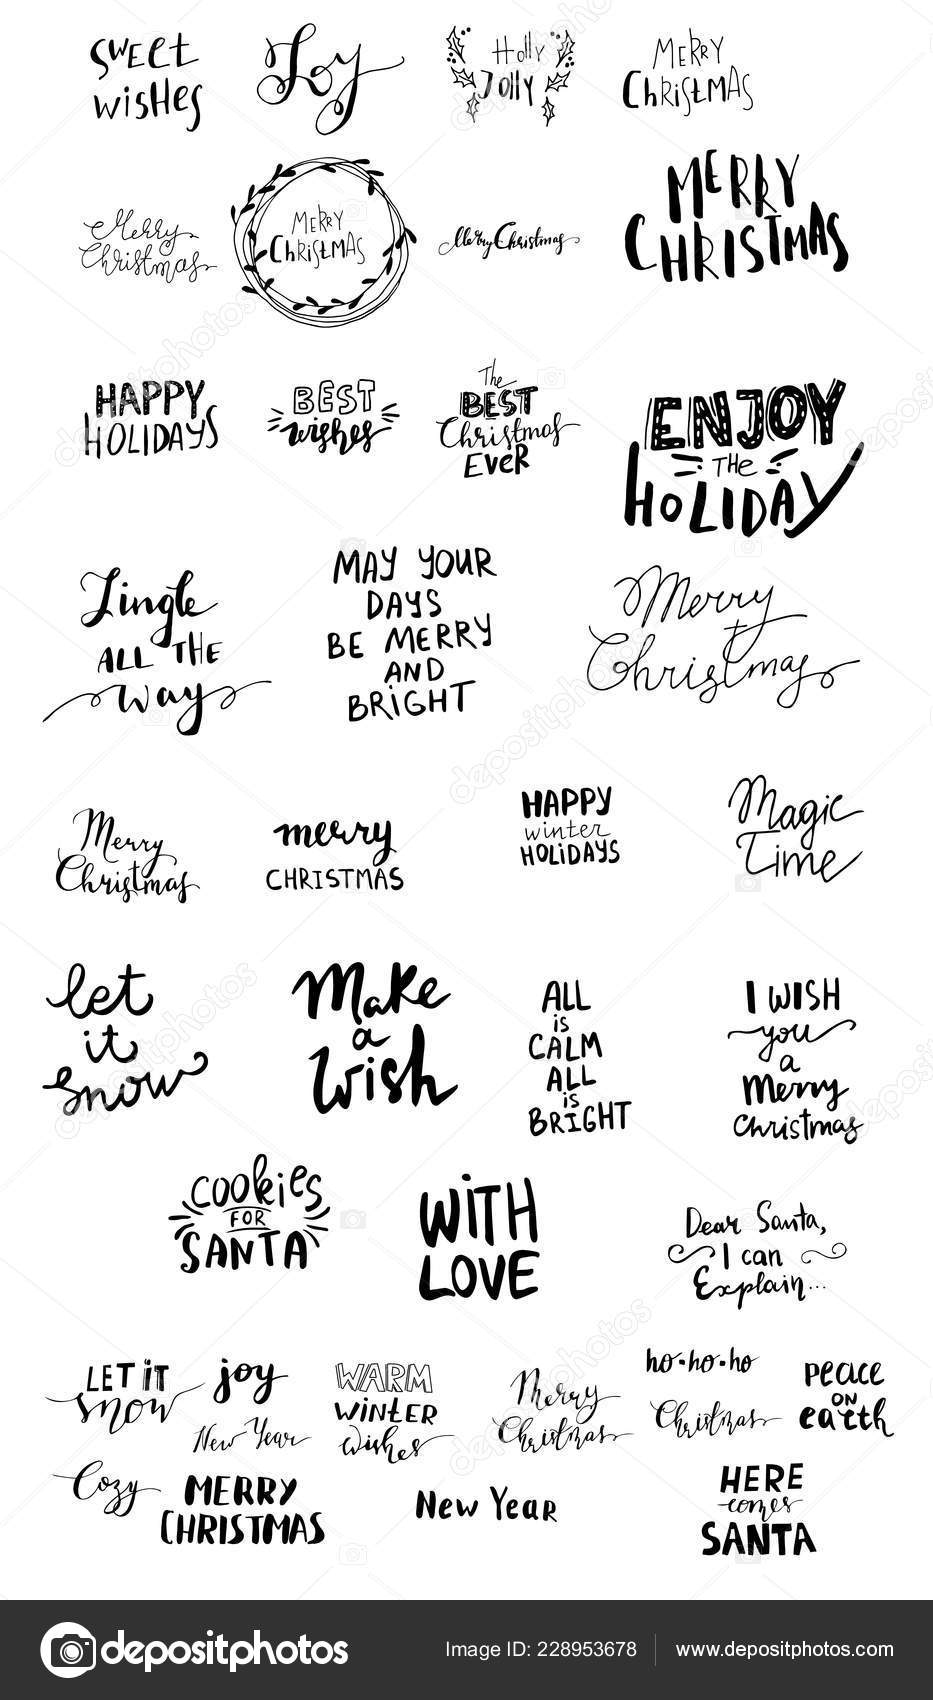 SWEET
WISHES
Joy
Holly
Jolly
MERRY
CHRISTMAS
Merry
Christmas
MERRY
CHRISTMAS
Merry Christmas
MERRY
CHRISTMAS
HAPPY
HOLIDAYS
BEST
wishes
The
BEST
Christmas
EVER
ENJOY
THE
HOLIDAY
Jingle
ALL THE
way
MAY YOUR
DAYS
BE MERRY
AND
BRIGHT
Merry
Christmas
Merry
Christmas
merry
CHRISTMAS
HAPPY
winter
HOLIDAYS
Magic
Time
let
it
snow
Make
a
Wish
ALL
is
CALM
ALL
is
BRIGHT
I WISH
you
a
Merry
Christmas
COOKIES
FOR
SANTA
WITH
LOVE
Dear Santa,
I can
Explain...
LET IT
snow
joy
New Year
WARM
WINTER
wishes
Merry
Christmas
ho-ho-ho
Christmas
PEACE
ON
EARTH
Cozy
MERRY
CHRISTMAS
New Year
HERE
comes
SANTA
depositphotos
Image ID: 228953678
www.depositphotos.com